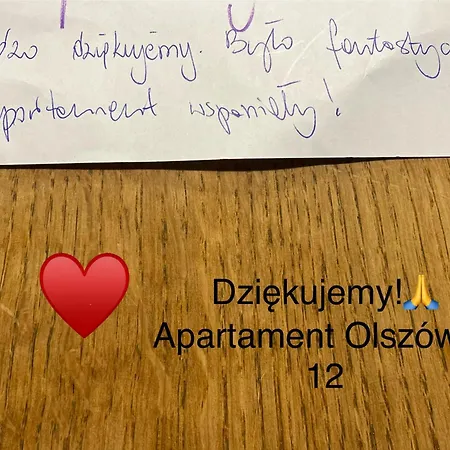 dzo dziękujemy. Było fantastyc
partament wspaniały!
Dziękujemy!🙏
Apartament Olszów
12